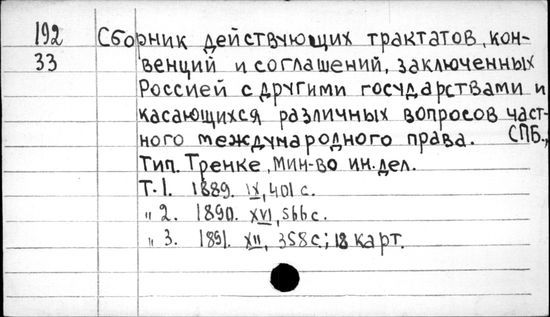 192 Сборник действующих трактатов, кон-
33 венций и соглашений, заключенных
Россией с другими государствами и
касающихся различных вопросов част-
ного международного права. СПБ.,
Тип. Тренке, Мин-во ин. дел.
Т. 1. 1889. IX, 401 с.
" 2. 1890. XVI, 566 с.
" 3. 1891. XII, 358 с; 18 карт.